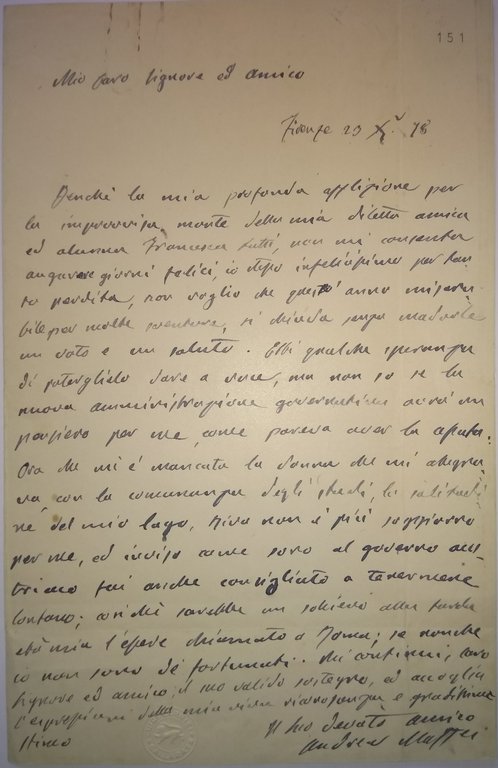 151
Mio caro Signore ed amico
Firenze 23 Xbre 78
Benchè la mia profonda afflizione per
la improvvisa morte della mia diletta amica
ed alunna Francesca Lutti, non mi consenta
augurare giorni felici, io stesso infelicissimo per tan
ta perdita, non voglio che quest'anno misera
bile per molte sventure, si chiuda senza mandarle
un voto e un saluto. Ebbi qualche speranza
di poterglielo dare a voce, ma non so se la
nuova amministrazione governativa avrà un
pensiero per me, come pareva aver la passata.
Ora che mi è mancata la donna che mi allegra
va con la comunanza degli studi, la solitudi
ne del mio lago, Riva non è più soggiorno
per me, ed inviso come sono al governo aus
triaco fui anche consigliato a tenermene
lontano; cosichè sarebbe un sollievo alla tarda
età mia l'essere chiamato a Roma; se nonche
io non sono de' fortunati. Mi continui, caro
Signore ed amico, il suo valido sostegno, ed accolga
l'espressioni della mia viva riconoscenza e
stima
Il suo devoto amico
Andrea Maffei